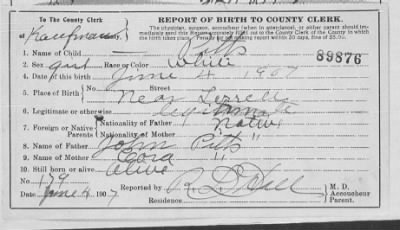 To the County Clerk
REPORT OF BIRTH TO COUNTY CLERK.
of Kaufman
The physician, surgeon, accoucheur (when in attendance), or either parent should immediately send this Report accurately filled out to the County Clerk of the County in which the birth takes place. Penalty for not making report within 20 days, fine of $5.00.
1. Name of Child — Pitts
89876
2. Sex girl Race or Color White
4. Date of this birth June 4 1907
5. Place of Birth No. Street
Near Terrell
6. Legitimate or otherwise Legitimate
7. Foreign or Native Nationality of Father Native
Parents Nationality of Mother "
8. Name of Father John Pitts "
9. Name of Mother Cora "
10. Still born or alive Alive
No. 179
Reported by R. D. Hill M. D.
Accoucheur
Parent.
Date June 4 1907
Residence